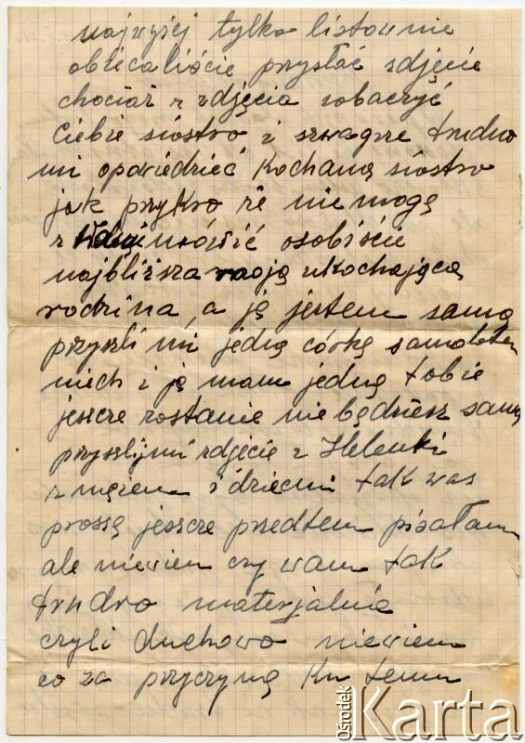 najwyżej tylko listownie
obiecaliście przysłać zdjęcie
chociaż z zdjęcia zobaczyć
Ciebie siostro i szwagra trudno
mi opowiedzieć Kochaną siostro
jak przykro że nie mogę
z mówić osobiście
najbliższa moją ukochającą
rodzina, a ją jestem samą
przyszli mi jedną córkę samolotem
niech i ją mam jedną tobie
jeszcze zostanie nie będziesz samą
przyszlijmi zdjęcie z Helenki
z mężem i dziecmi tak was
proszą jeszcze przedtem pisałam
ale niewiem czy wam tak
trudno materjalnie
czyli duchowo niewiem
co za przyczyną Ku temu
Ośrodek
Karta